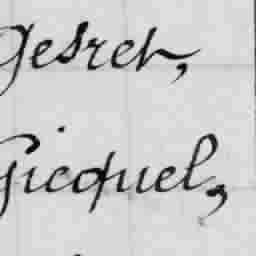 Gesret,
Gicquel,